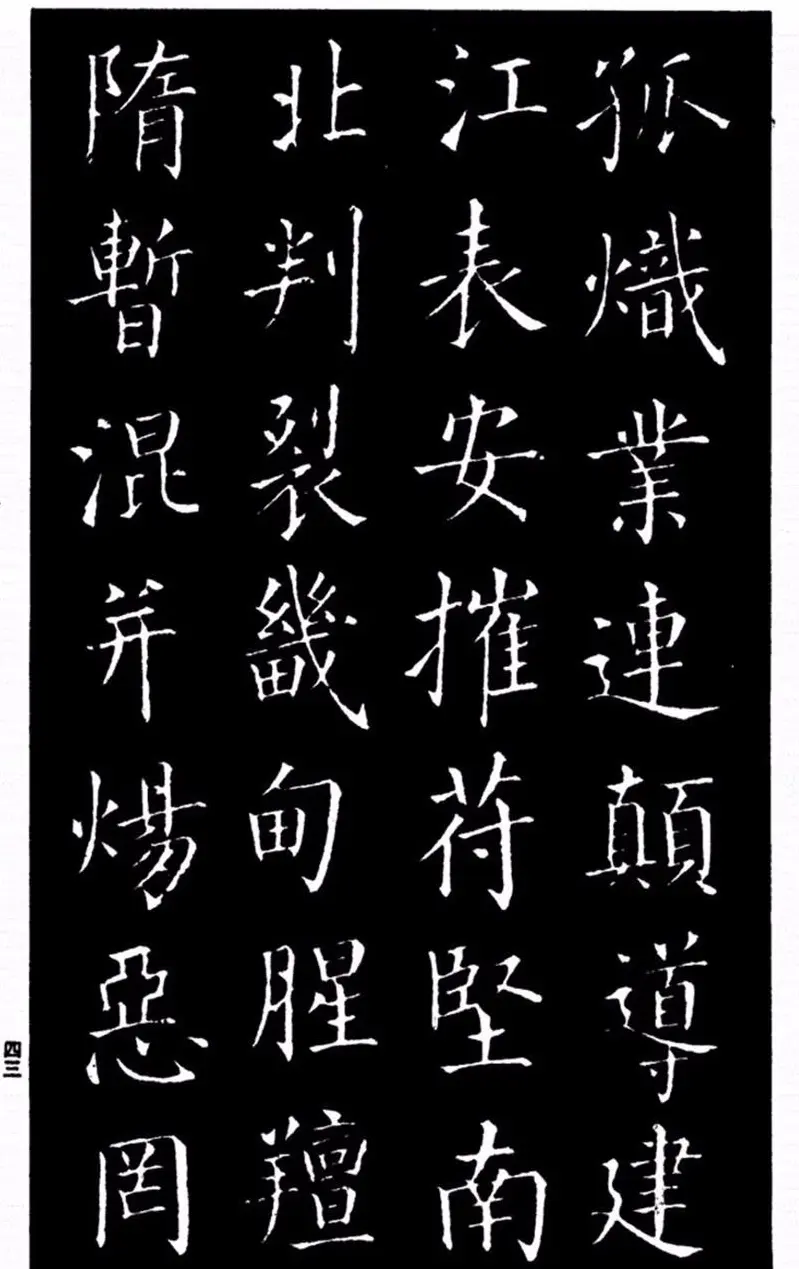 孤熾業連顛導建
江表安摧苻堅南
北判裂畿甸腥羶
隋暫混并煬惡罔
四三